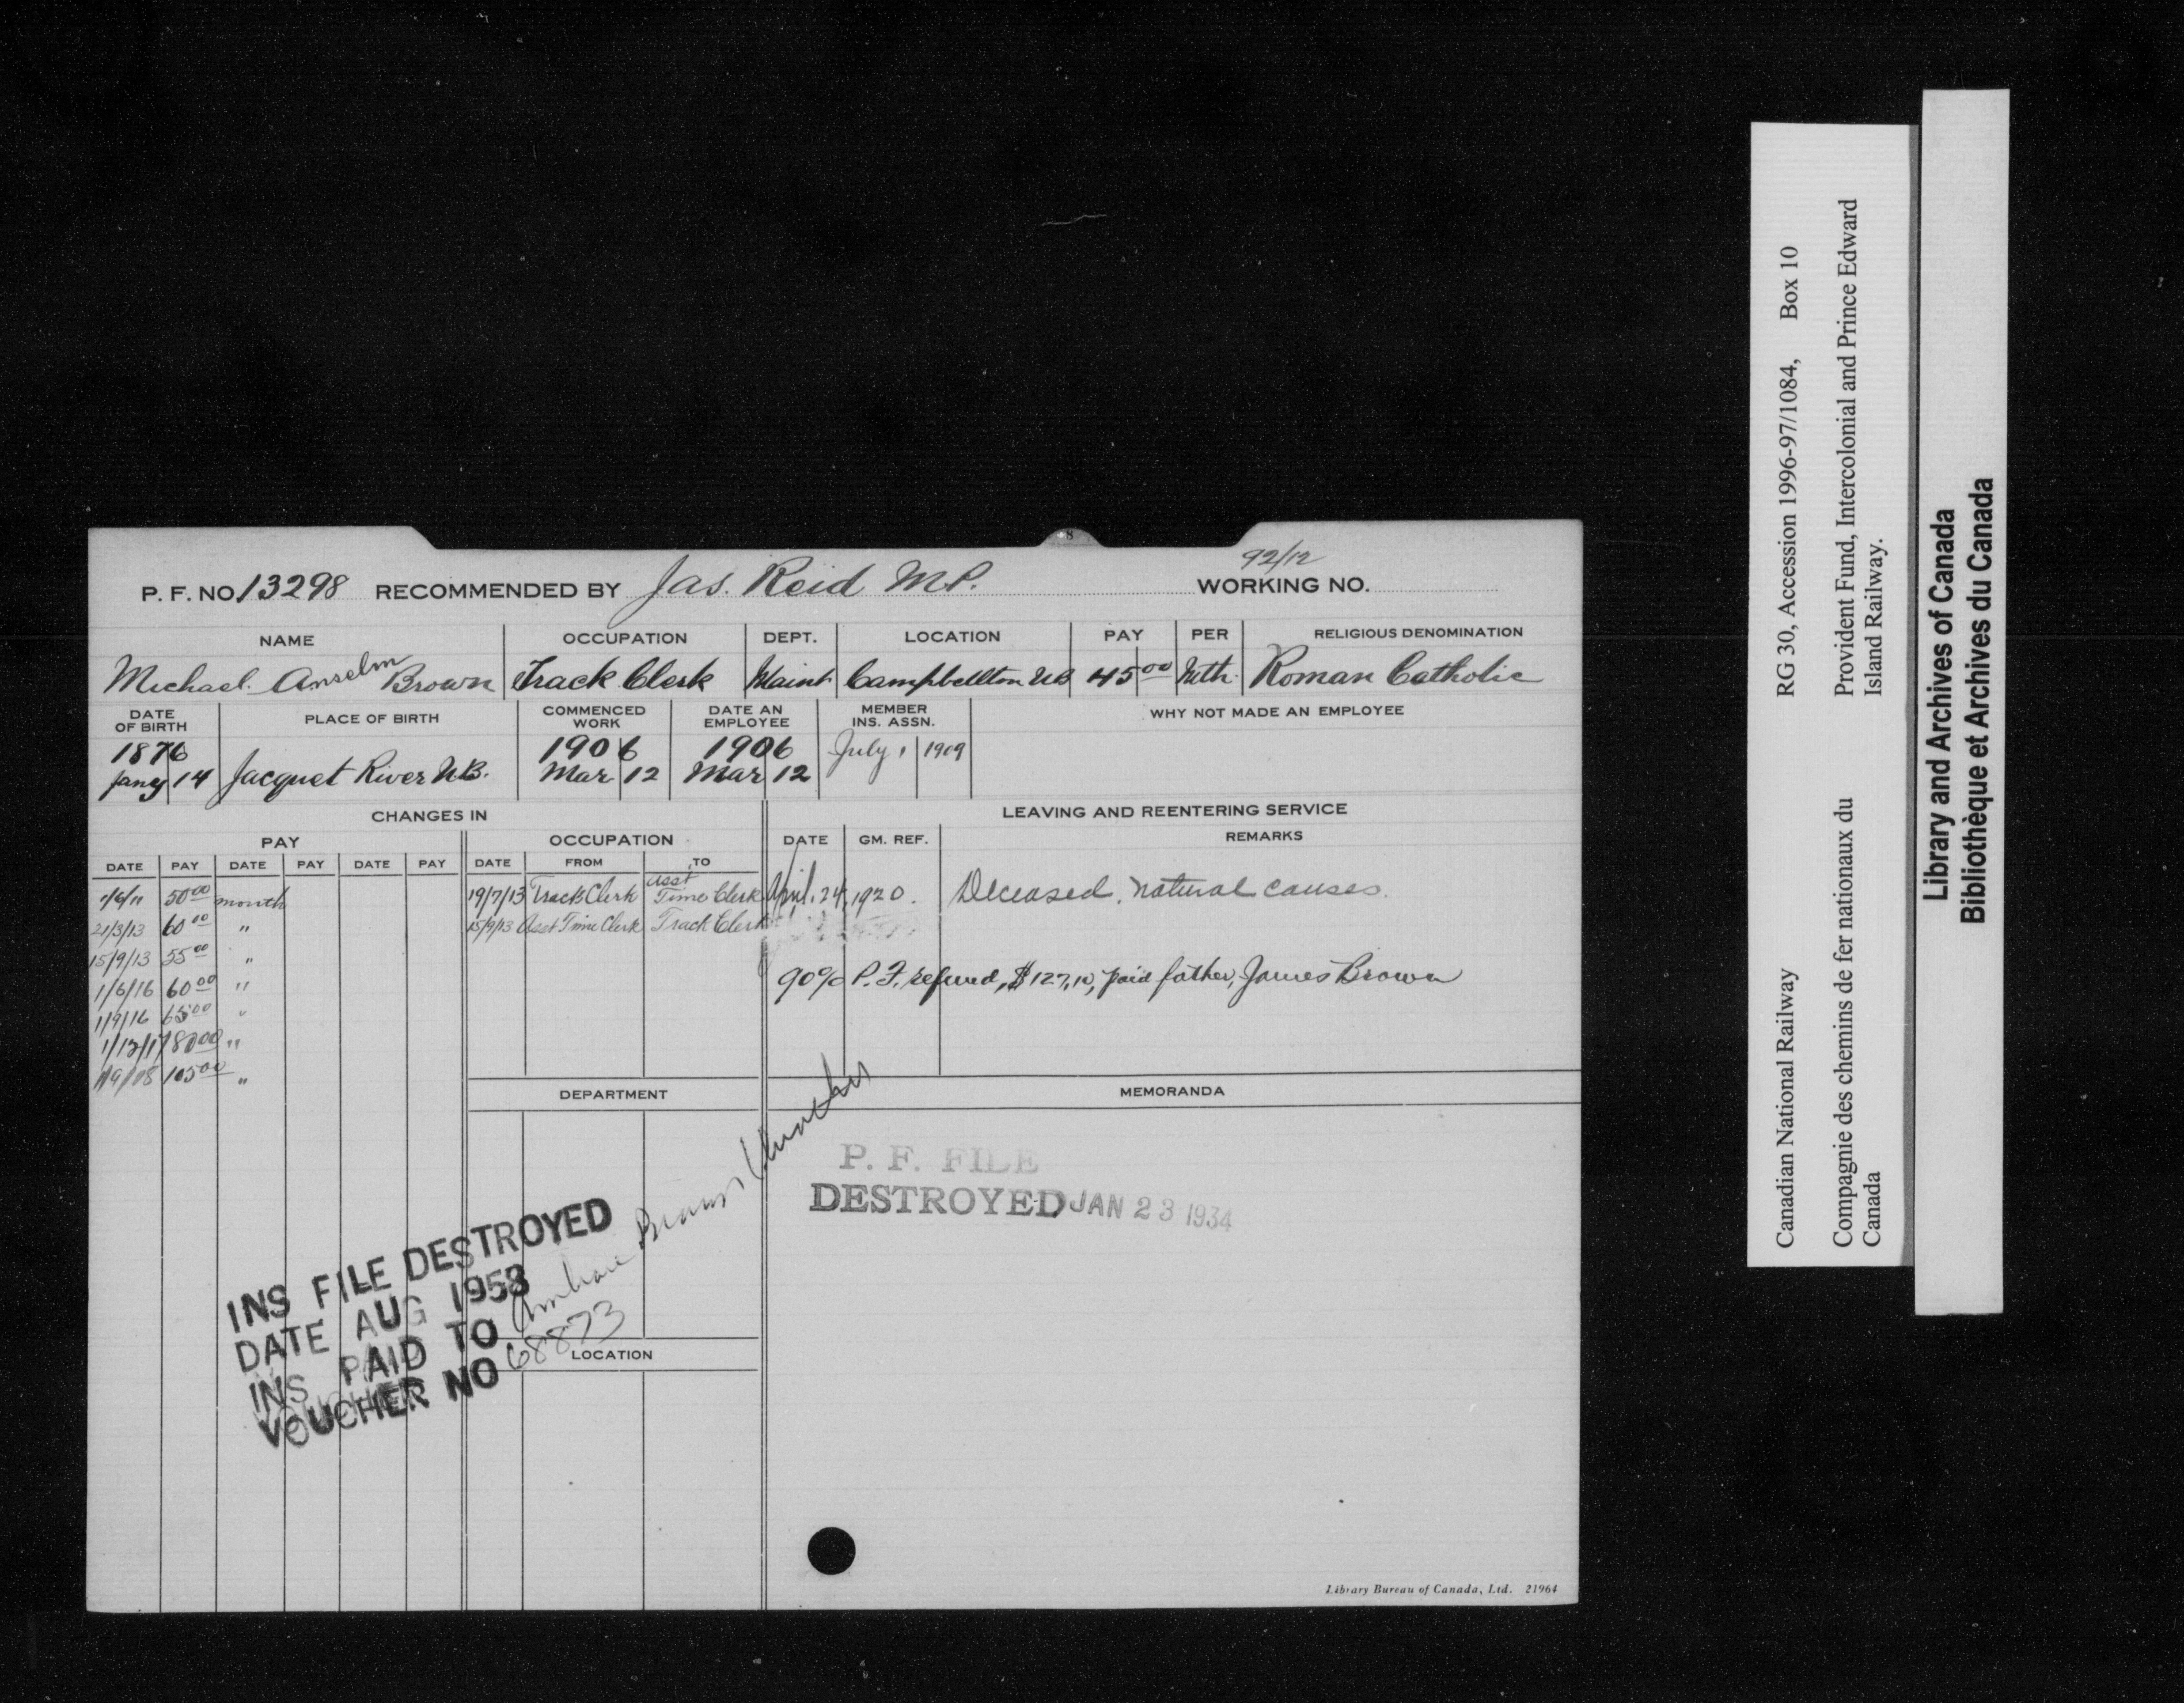 92/12
P. F. NO. 13298 RECOMMENDED BY Jas. Reid M.P. WORKING NO.
NAME OCCUPATION DEPT. LOCATION PAY PER RELIGIOUS DENOMINATION
Michael Anselm Brown Track Clerk Maint Campbellton NB 45 00 Mth. Roman Catholic
DATE OF BIRTH PLACE OF BIRTH COMMENCED WORK DATE AN EMPLOYEE MEMBER INS. ASSN. WHY NOT MADE AN EMPLOYEE
1876 1906 1906 July 1 1909
Jany 14 Jacquet River N.B. Mar 12 Mar 12
CHANGES IN LEAVING AND REENTERING SERVICE
PAY OCCUPATION DATE GM. REF. REMARKS
DATE PAY DATE PAY DATE PAY DATE FROM TO
1/6/11 50 00 month 19/7/13 Track Clerk Asst Time Clerk April 24, 1920. Deceased, natural causes.
21/3/13 60 00 " 15/9/13 Asst Time Clerk Track Clerk
15/9/13 55 00 "
1/6/16 60 00 " 90% P. F. refund, $127.10, paid father, James Brown
1/9/16 65 00 "
1/12/17 80 00 "
1/9/18 105 00 "
DEPARTMENT MEMORANDA
P. F. FILE
DESTROYED JAN 23 1934
INS FILE DESTROYED
DATE AUG 1958
INS PAID TO
VOUCHER NO 68873
LOCATION
Library Bureau of Canada, Ltd. 21964
Canadian National Railway RG 30, Accession 1996-97/1084, Box 10
Compagnie des chemins de fer nationaux du Canada Provident Fund, Intercolonial and Prince Edward Island Railway.
Library and Archives of Canada
Bibliothèque et Archives du Canada